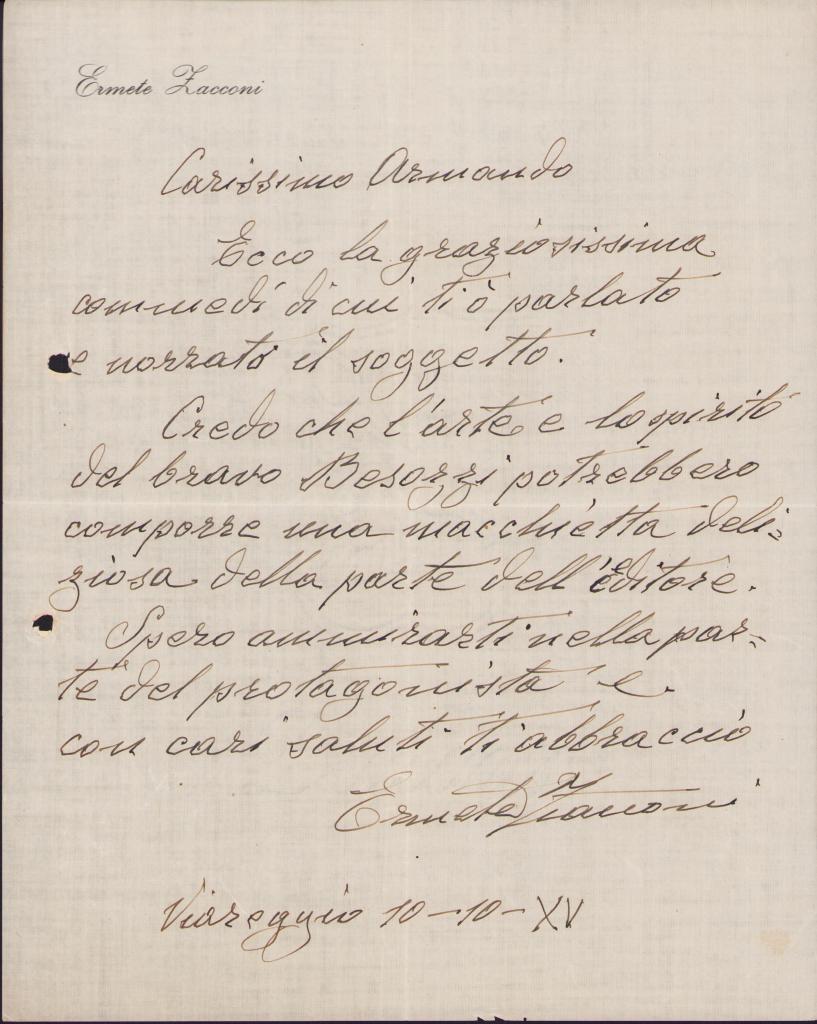 Ermete Zacconi
Carissimo Armando
Ecco la graziosissima
commedi di cui ti ò parlato
e norrato il soggetto.
Credo che l'arte e lo spirito
del bravo Besozzi potrebbero
comporre una macchietta deli=
ziosa della parte dell'editore.
Spero ammirarti nella par=
te del protagonista e
con cari saluti ti abbraccio
Ermete Zacconi
Viareggio 10-10-XV